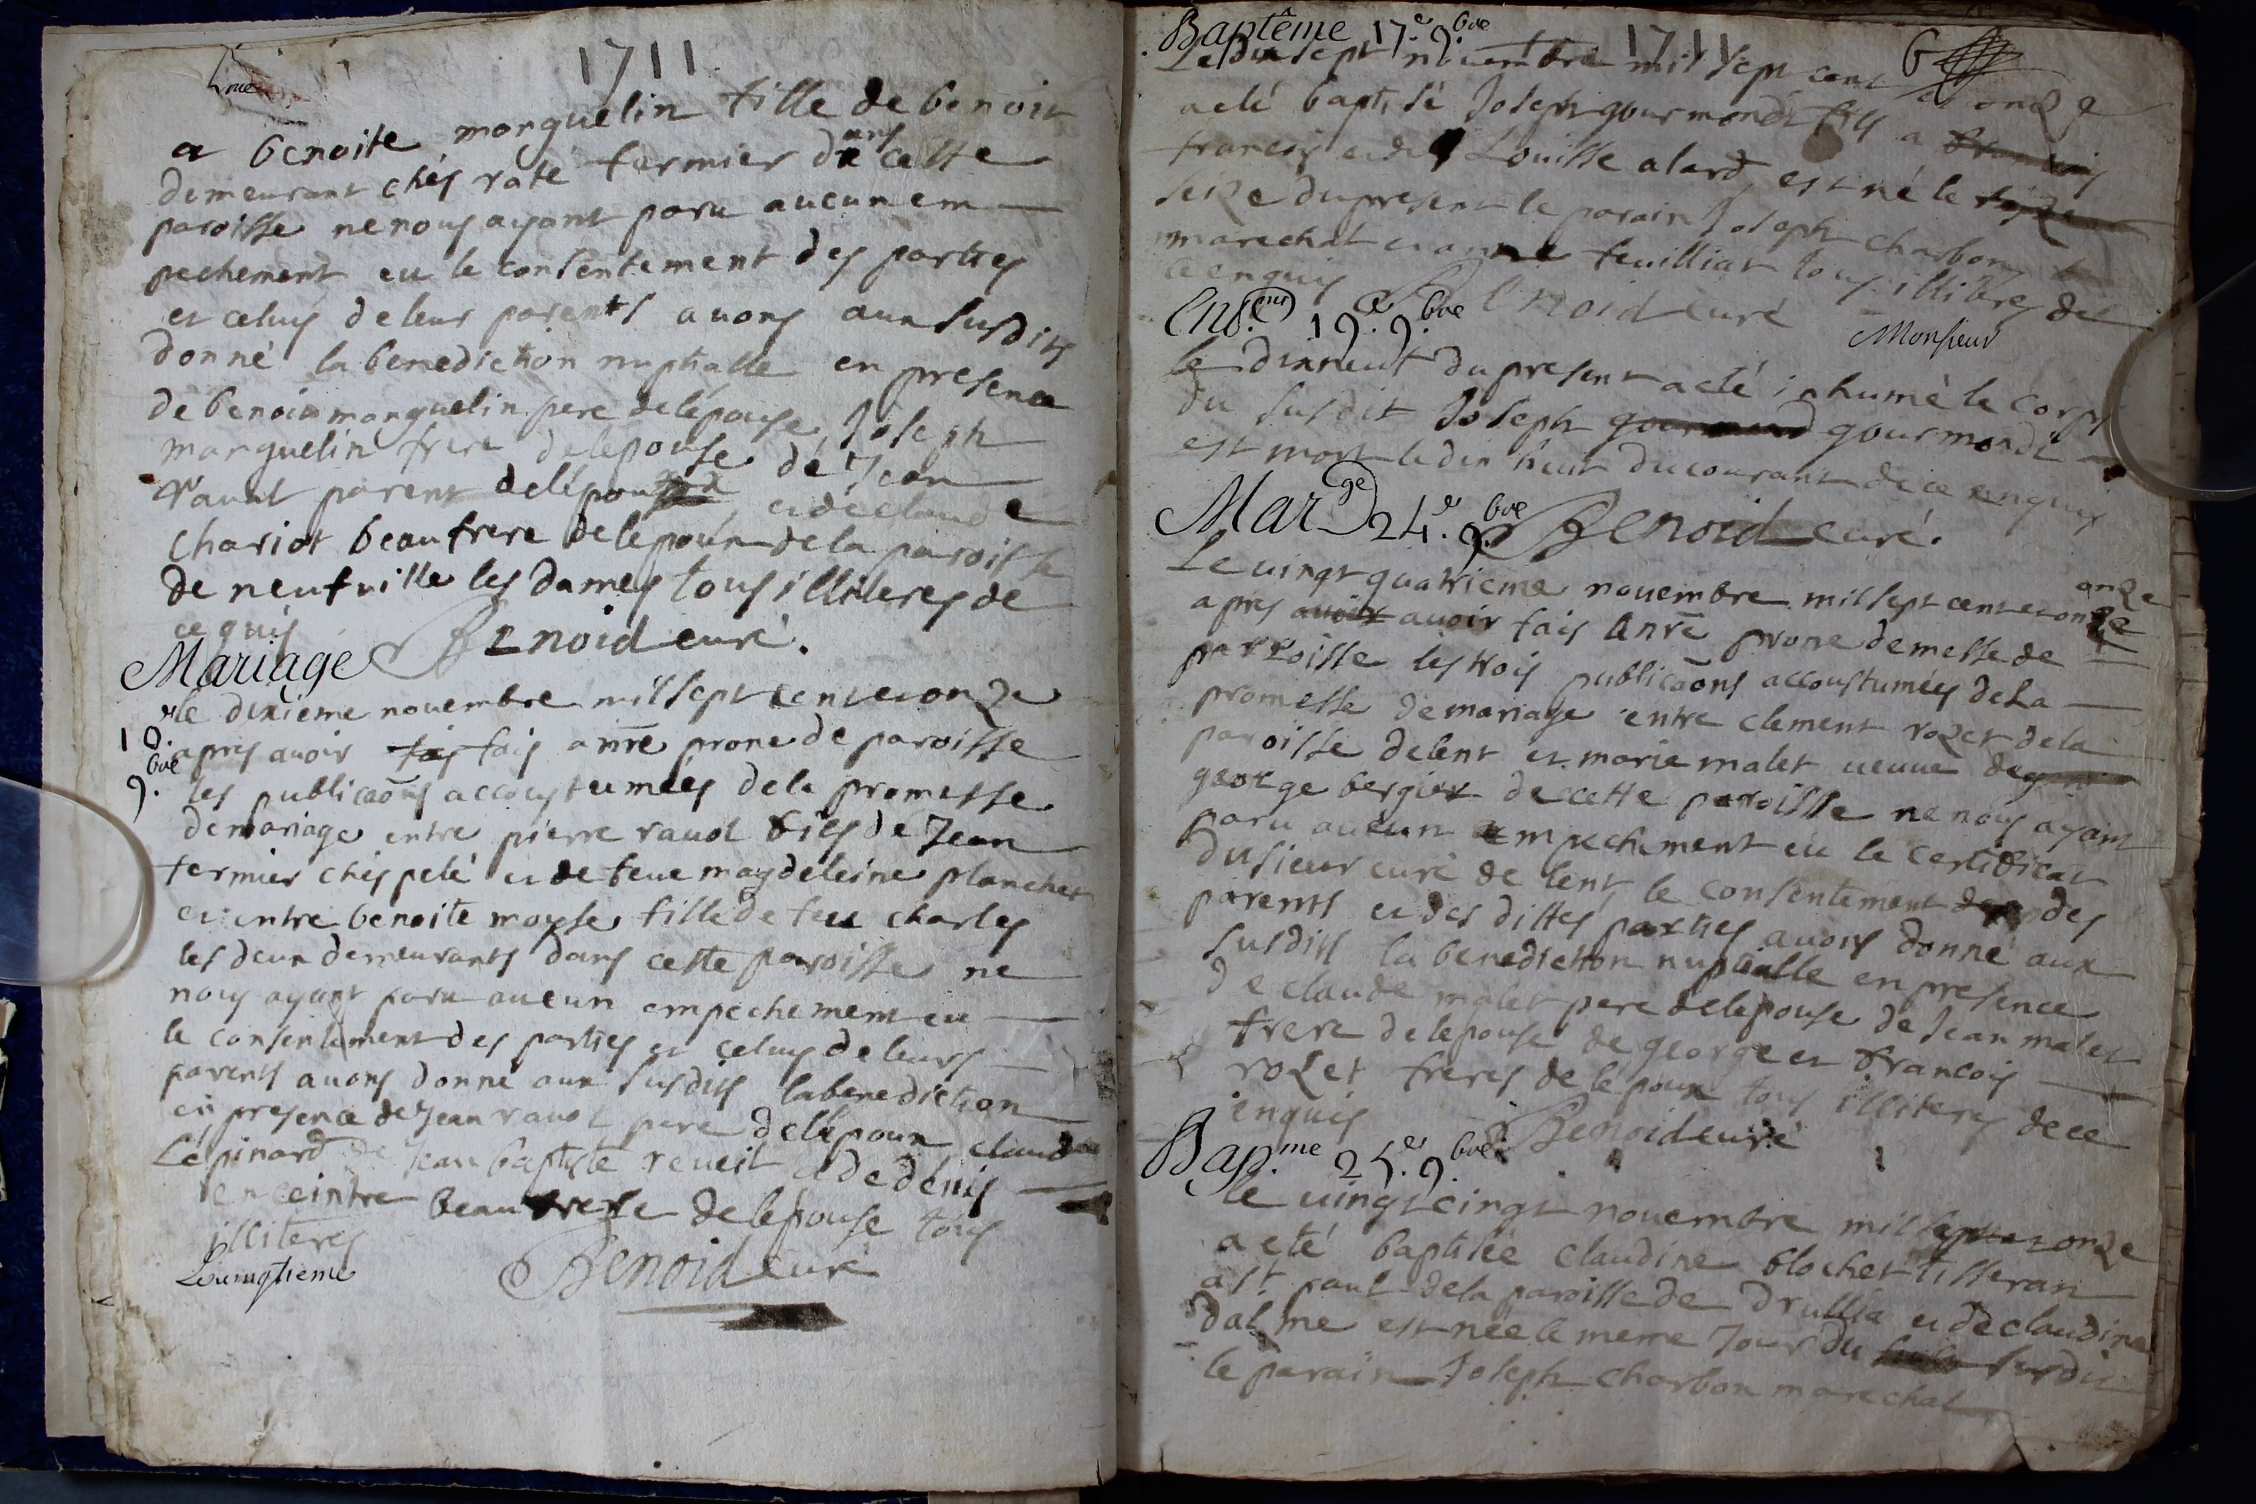 1711
a benoite morguelin fille de benoit
demeurant chés raté fermier dans cette
paroisse ne nous ayant paru aucun em
pechement eu le consentement des parties
et celuy de leur parents avons aux susdits
donné la benediction nuptialle en presence
de benoit morguelin pere de lépouse, Joseph
marguelin frere de lépouse de Jean
ravat parent de lépouse et de claude
chariot beaufrere de lépoux de la paroisse
de neufville les dames tous illiteres de
ce quis Benoid curé.
Mariage
10.e 9.bre
le dixieme novembre mil sept cent et onze
apres avoir fais fais a nre prone de paroisse
les publicaons accoustumées de la promesse
de mariage entre pierre ravat fils de Jean
fermier chés pelé et de feue magdeleine plancher
et entre benoite moyse fille de feu charles
les deux demeurants dans cette paroisse ne
nous ayant paru aucun empechement eu
le consentement des parties et celuy de leurs
parents avons donné aux susdits la benediction
en presence de Jean ravat pere de lépoux claude
Lépinard de Jean baptiste reveit et de denis
enceintre beau frere de lépouse tous
illiteres
Benoid curé
Levingtieme
Baptême 17.e 9.bre
1711
6
Le dix sept novembre mil sept cent et onze
a eté baptisé Joseph gourmondt fils a francois
francois et de Louisse alard est né le seize
seize du present le parain Joseph charbon
marechal et anne feuilliat tous illitéres de
ce enquis Benoid curé
Ent.ent 19.e 9.bre
Monsieur
le dixneuf du present a eté inhumé le corps
du susdit Joseph gourmond gourmondt
est mort le dix huit du courant de ce enquis
Benoid curé.
Mar.ge 24.e 9.bre
Le vingt quatrieme novembre mil sept cent et onze
onze
apres avoir avoir fais a nre prone de messe de
parroisse les trois publicaons accoustumées de la
promesse de mariage entre clement rozet de la
paroisse de lent et marie malet veuve de
george bergier de cette paroisse ne nous ayant
paru aucun empechement eu le certificat
du sieur curé de lent, le consentement des
parents et des dittes parties avons donné aux
susdits la benediction nuptialle en presence
de claude malet pere de lepouse de Jean malet
frere de lepouse de george et francois
rozet freres de lepoux tous illiteres de ce
enquis Benoid curé
Bap.me 25.e 9.bre
le vingt cinqt novembre mil sept et onze
a eté baptisée claudine blochet tisseran
a st paul de la paroisse de Druillia et de claudine
dalme est née le meme Jour du susdit
le parain Joseph charbon marechal